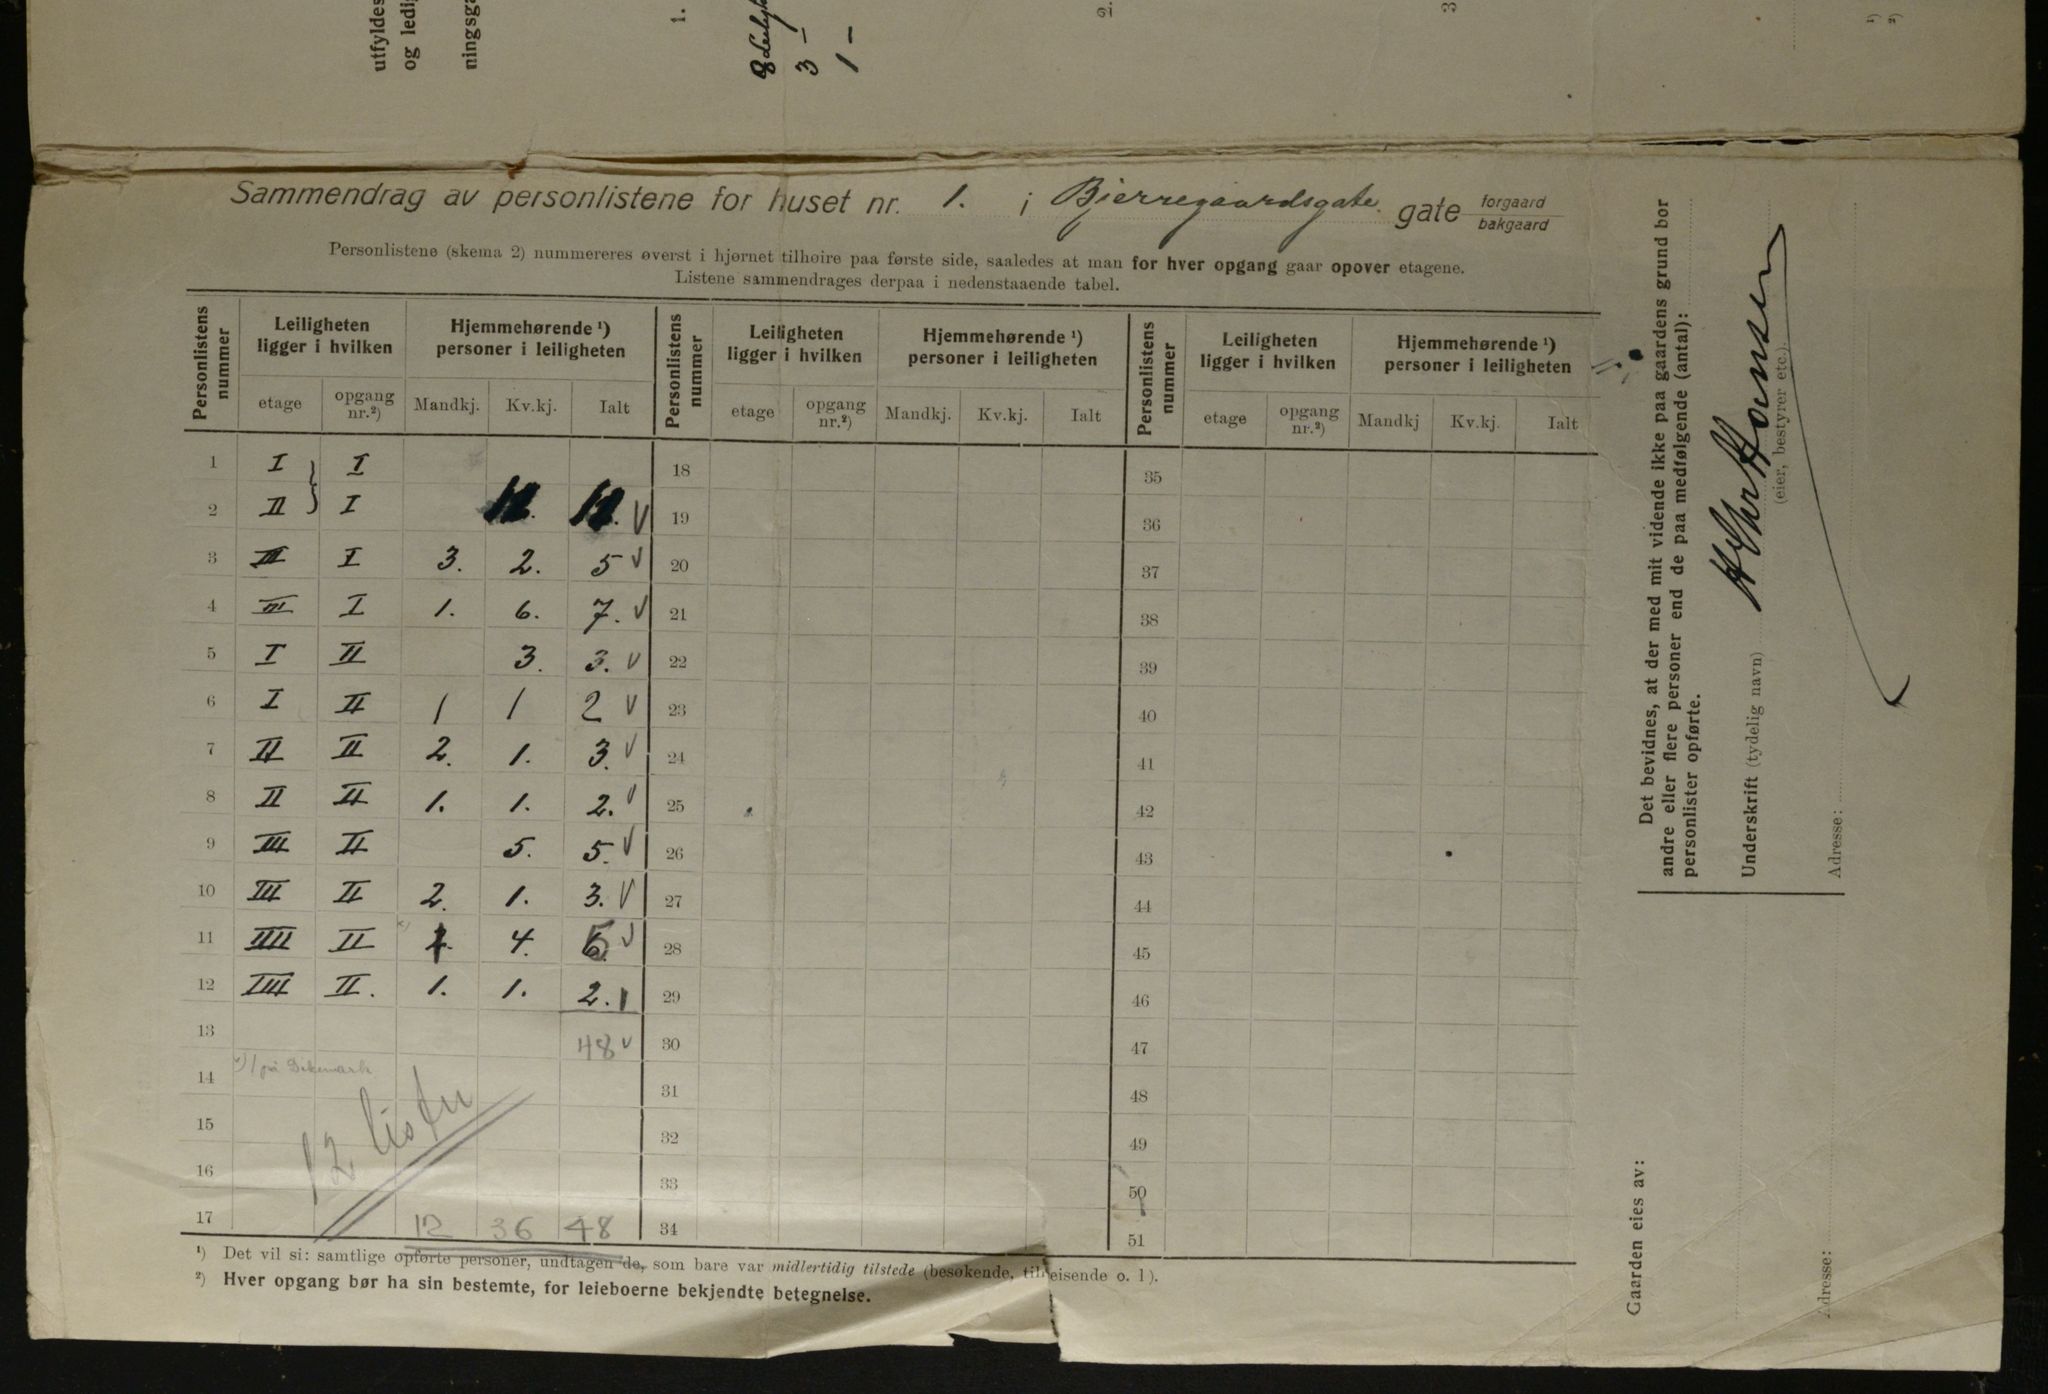 utfyldes
og ledig
ningsga
1.
8 Leilighe
3 —
1 —
3
1)
2)
Sammendrag av personlistene for huset nr. 1. i Bjerregaardsgate. gate forgaard bakgaard
Personlistene (skema 2) nummereres øverst i hjørnet tilhøire paa første side, saaledes at man for hver opgang gaar opover etagene.
Listene sammendrages derpaa i nedenstaaende tabel.
Personlistens nummer | Leiligheten ligger i hvilken | Hjemmehørende ¹) personer i leiligheten | Personlistens nummer | Leiligheten ligger i hvilken | Hjemmehørende ¹) personer i leiligheten | Personlistens nummer | Leiligheten ligger i hvilken | Hjemmehørende ¹) personer i leiligheten
etage | opgang nr.²) | Mandkj. | Kv.kj. | Ialt | etage | opgang nr.²) | Mandkj. | Kv.kj. | Ialt | etage | opgang nr.²) | Mandkj | Kv.kj. | Ialt
1 I } I 18 35
2 II } I 11. 11. V 19 36
3 III I 3. 2. 5 V 20 37
4 III I 1. 6. 7. V 21 38
5 I II 3. 3. V 22 39
6 I II 1 1 2 V 23 40
7 II II 2. 1. 3. V 24 41
8 II II 1. 1. 2. V 25 42
9 III II 5. 5. V 26 43
10 III II 2. 1. 3. V 27 44
11 IIII II 1. 4. 5. V 28 45
12 IIII II. 1. 1. 2. 29 46
13 48 V 30 47
14 ×) 1 på Dikemark 31 48
15 12 lister 32 49
16 33 50
17 12 36 48 34 51
¹) Det vil si: samtlige opførte personer, undtagen de, som bare var midlertidig tilstede (besøkende, tilreisende o. l).
²) Hver opgang bør ha sin bestemte, for leieboerne bekjendte betegnelse.
Det bevidnes, at der med mit vidende ikke paa gaardens grund bor
andre eller flere personer end de paa medfølgende (antal):
personlister opførte.
Underskrift (tydelig navn)
(eier, bestyrer etc.).
Adresse:
Gaarden eies av:
Adresse: